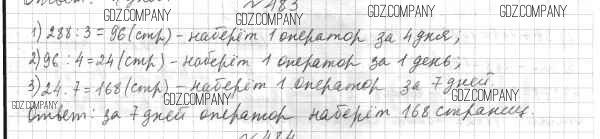 №483
GDZ.COMPANY GDZ.COMPANY GDZ.COMPANY GDZ.COMPANY
1) 288 : 3 = 96 (стр) - наберёт 1 оператор за 4 дня;
2) 96 : 4 = 24 (стр) - наберёт 1 оператор за 1 день;
3) 24 · 7 = 168 (стр) - наберёт 1 оператор за 7 дней
GDZ.COMPANY GDZ.COMPANY GDZ.COMPANY GDZ.COMPANY
Ответ: за 7 дней оператор наберёт 168 страниц.
№484